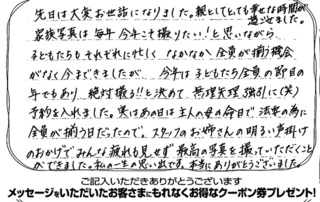 先日は大変お世話になりました。親としてとても幸せな時間が
過ごせました。
家族写真は毎年今年こそ撮りたい!と思いながら
子どもたちもそれぞれに忙しく なかなか全員が揃う機会
がなく今まできましたが 今年は子どもたち全員の節目の
年でもあり 絶対撮る!!と決めて、無理矢理強引に(笑)
予約を入れました。実はあの日は主人の母の命日で法要の為に
全員が揃う日だったので。スタッフのお姉さんの明るい声掛け
のおかげでみんな疲れも見せず最高の写真を撮っていただくこと
ができました。私の一生の思い出です。本当にありがとうございました。
ご記入いただきありがとうございます
メッセージをいただいたお客さまにもれなくお得なクーポン券プレゼント!